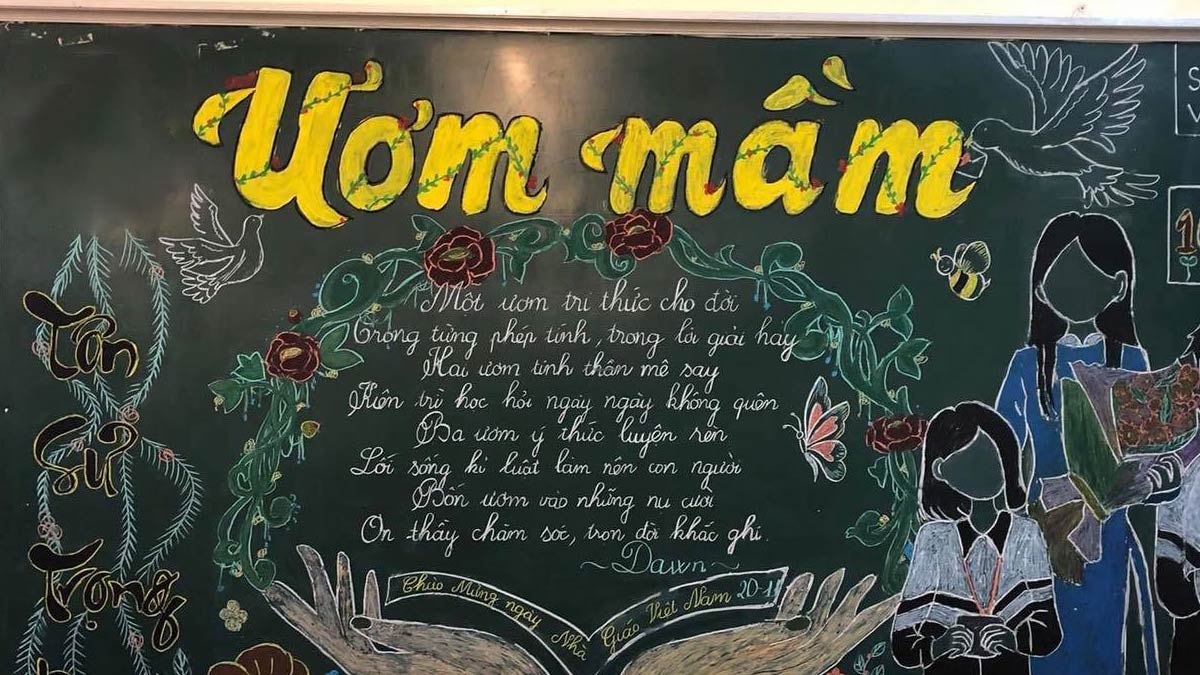 Ươm mầm
Tôn
Sư
Trọng
Một ươm tri thức cho đời
Trong từng phép tính, trong lời giải hay
Hai ươm tinh thần mê say
Kiên trì học hỏi ngày ngày không quên
Ba ươm ý thức luyện rèn
Lối sống kỉ luật làm nên con người
Bốn ươm vào những nụ cười
Ơn thầy chăm sóc, trọn đời khắc ghi.
~Dawn~
Chào Mừng ngày Nhà Giáo Việt Nam 20-11